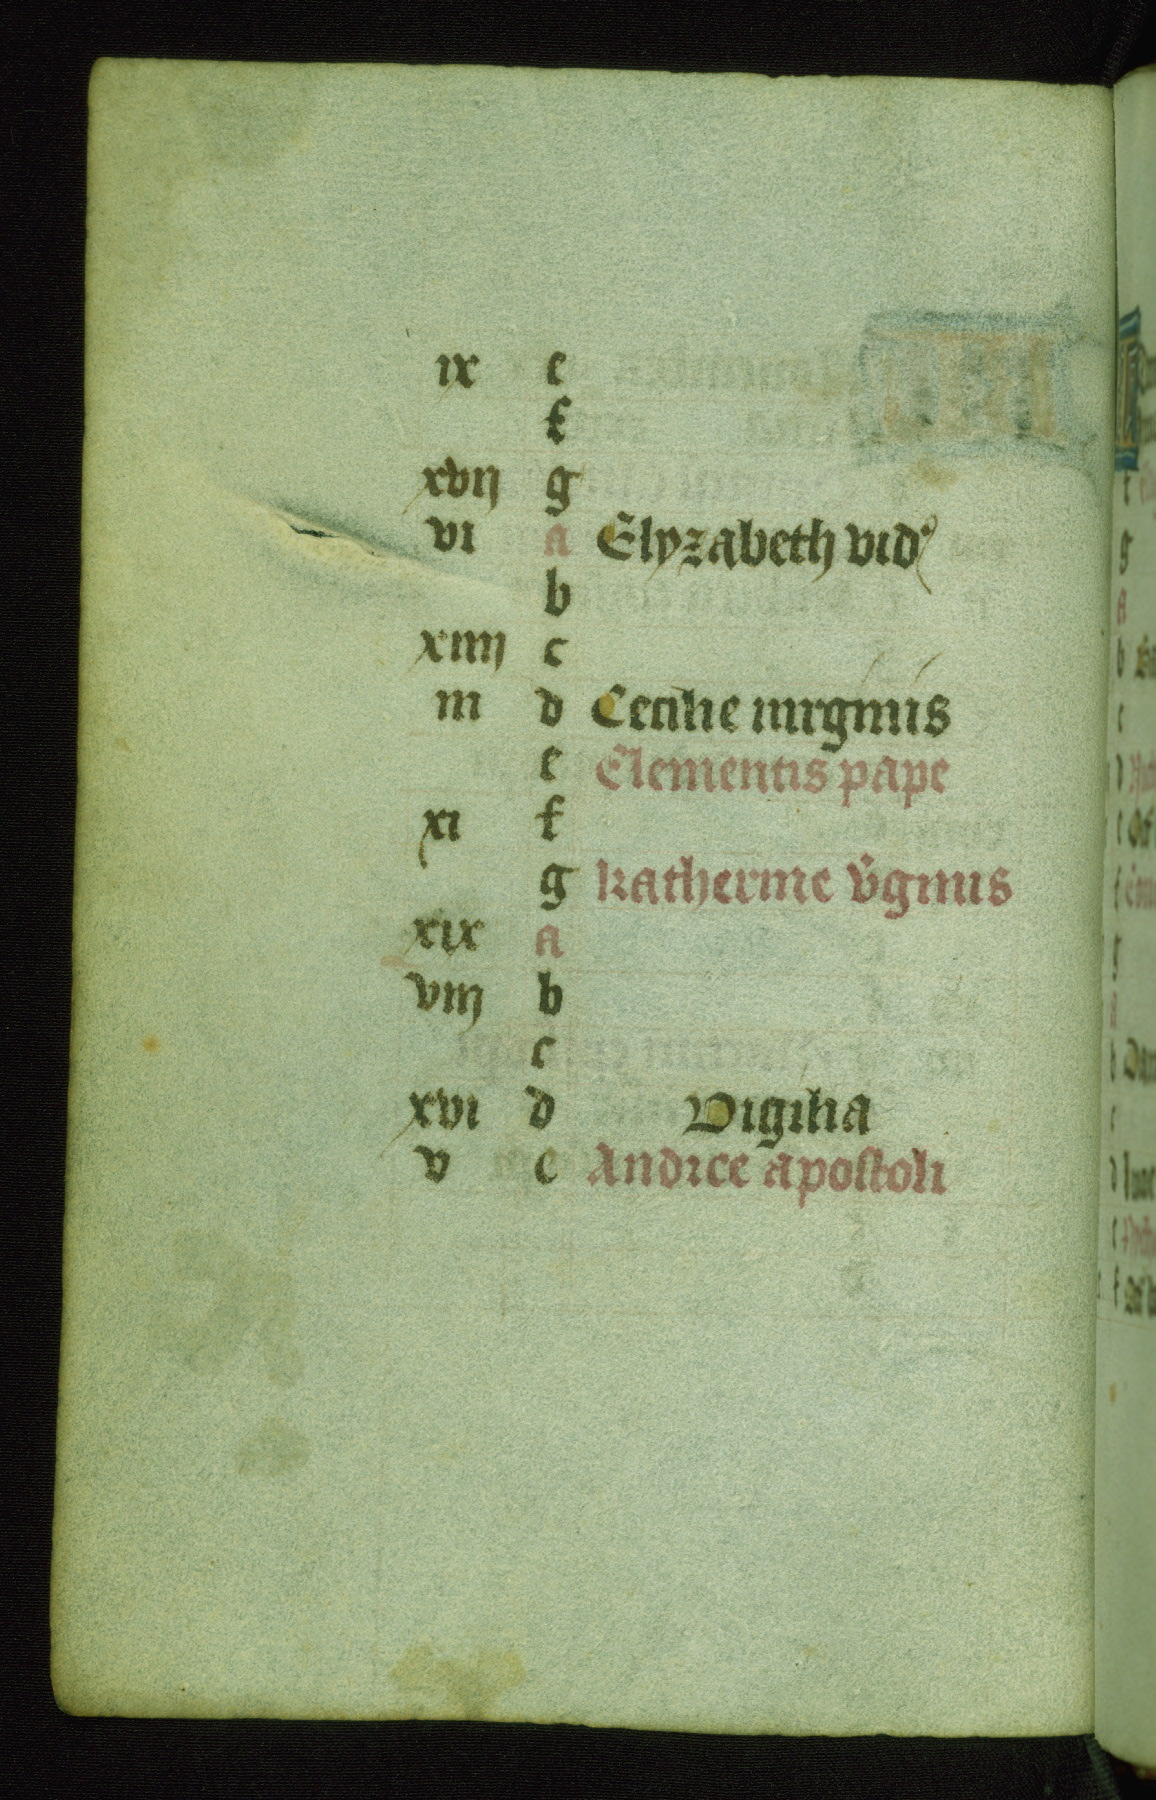 ix e
f
xvij g
vi A Elyzabeth vid'
b
xiiij c
iii d Cecilie uirginis
e Clementis pape
xi f
g katherine v̇ginis
xix A
viij b
c
xvi d Vigilia
v e Andree apostoli